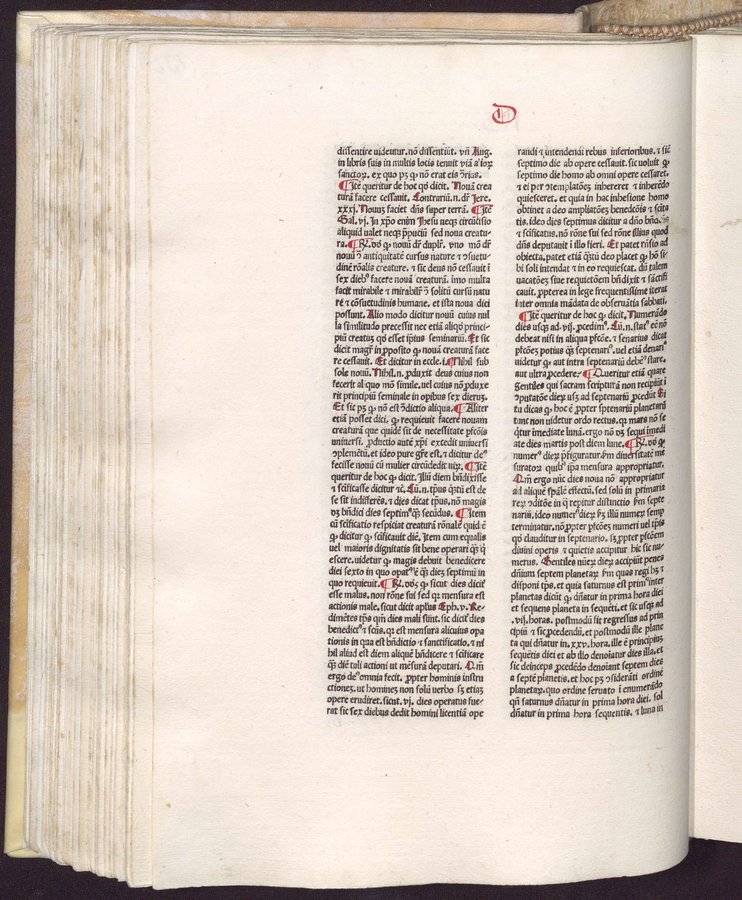 D
dissentire uidentur. nō dissentiūt. vn̄ Aug.
in libris suis in multis locis tenuit viā alioꝝ
sanctoꝝ. ex quo pꝫ ꝙ nō erat eis ↄ̄rius.
¶ Itē queritur de hoc qd̄ dicit. Nouā crea
turā facere cessauit. Contrariū.n. dr̄ Jere.
xxxj. Nouuꝫ faciet dn̄s super terrā. ¶ Itē
Gal. vj. In xp̄o enim Jhesu neqꝫ circūcisio
aliquid ualet neqꝫ p̄puciū sed noua creatu
ra. ¶ R̄. dō ꝙ nouū dr̄ duplr̄. vno mō dr̄
nouū ↄ̄ antiquitatē cursus nature ⁊ ↄsuetu-
dinē rōalis creature. ⁊ sic deus nō cessauit ī
sex diebꝰ facere nouā creaturā. imo multa
facit mirabile ⁊ mirabilr̄ ↄ̄ solitū cursū natu
re ⁊ cōsuetudinis humane. et ista noua dici
possunt. Alio modo dicitur nouū cuius nul
la similitudo precessit nec etiā aliqd̄ princi-
piū creatuꝫ qd̄ esset ip̄ius seminariū. Et sic
dicit magr̄ in ꝓposito ꝙ nouā creaturā face
re cessauit. Et dicitur in eccle.i. ¶ Nihil sub
sole nouū. Nihil.n. ꝓduxit deus cuius non
fecerit aliquo mō simile. uel cuius nō ꝓduxe
rit principiū seminale in opibus sex dieruꝫ.
Et sic pꝫ ꝙ nō est ↄ̄dictio aliqua. ¶ Aliter
etiā posset dici. ꝙ requieuit facere nouam
creaturā que quidē sit de necessitate ꝑfcōis
universi. ꝓductio autē xp̄i excedit universi
ↄplemētū. et ideo pure gr̄e est. ⁊ dicitur deꝰ
fecisse nouū cū mulier circūdedit uiꝝ. ¶ Itē
queritur de hoc ꝙ dicit. Illū diem bn̄dixisse
⁊ sc̄ificasse dicitur ⁊c̄. Cū.n. tp̄us qtū est de
se sit indifferēs. ⁊ dies dicat tp̄us. nō magis
dꝫ bn̄dici dies septimꝰ qꝫ secūdus. ¶ Item
cū sc̄ificatio respiciat creaturā rōnalē quid ē
ꝙ dicitur ꝙ sc̄ificauit diē. Item cum equalis
uel maioris dignitatis sit bene operari qꝫ q
escere. uidetur ꝙ magis debuit benedicere
diei sexto in quo opatꝰ ē qꝫ dieꝫ septimū in
quo requieuit. ¶ R̄. dōꝫ ꝙ sicut dies dicitˀ
esse malus. non rōne sui sed qꝛ mensura est
actionis male. sicut dicit apl̄us Eph. v. Re-
dimētes tp̄s qm̄ dies mali sunt. sic dicit̄ dies
benedictꝰ ⁊ sc̄ūs. qꝛ est mensura alicuius opa
tionis in qua est bn̄dictio ⁊ sanctificatio. ⁊ ni
hil aliud est diem aliquē bn̄dicere ⁊ sc̄ificare
qꝫ diē tali actioni ut mēsurā deputari. Q.m̄
ergo deꝰ omnia fecit. ꝓpter hominis instru
ctioneꝫ. ut homineꝫ non solū uerbo sꝫ etiaꝫ
opere erudiret. sicut. vj. dies operatus fue-
rat sic sex diebus dedit homini licentiā ope
randi ⁊ intendendi rebus inferioribus. ⁊ sic
septimo die ab opere cessauit. sic uoluit ꝙ
septimo die homo ab omni opere cessaret.
⁊ ei per ↄtemplatōeꝫ inhereret ⁊ inherēdo
quiesceret. et quia in hac inhesione homo
obtinet a deo ampliatōeꝫ benedcōis ⁊ sc̄ita
tis. ideo dies septimus dicitur a dn̄o bn̄dcūs
⁊ sc̄ificatus. nō rōne sui sed rōne illius quod
dn̄s deputauit ī illo fieri. Et patet rn̄sio ad
obiecta. patet etiā qtū deo placet ꝙ hō si-
bi soli intendat ⁊ in eo requiescat. dū talem
vacatōeꝫ siue requietōem bn̄dixit ⁊ sāctifi
cauit. ꝓpterea in lege frequentissime iterat̄
inter omnia mādata de obseruātia sabbati.
¶ Itē queritur de hoc ꝙ dicit. Numerādo
dies usqꝫ ad .vij. ꝓcedimꝰ. Cū.n. statꝰ eō nō
debeat nisi in aliqua ꝑfcōe. ⁊ senarius dicat
ꝑfcōeꝫ potius qꝫ septenariꝰ. uel etiā denariꝰ
uidetur ꝙ aut intra septenariū debeꝰ stare.
aut ultra ꝓcedere. ¶ Queritur etiā quare
gentiles qui sacram scripturā non recipiūt ī
ↄputatōe dieꝝ usqꝫ ad septenariū ꝓcedūt Si
tu dicas ꝙ hoc ē ꝓpter septenariū planetarū
tunc non uidetur ordo rectus. qꝛ mars nō se
qtur īmediate lunā. ergo nō dꝫ sequi īmedi
ate dies martis post diem lune. ¶ R̄. dō ꝙ
numerꝰ dieꝝ p̄figuratur s̄m diuersitatē mē
suratoꝝ quibꝰ ip̄a mensura appropriatur.
Q.m̄ ergo nūc dies noua nō appropriatur
ad aliquē sp̄alē effectū. sed solū in primaria
reꝝ ↄditōe in q̄ repitur distinctio s̄m septe
nariū. ideo numerꝰ dieꝝ ꝓꝫ illū numeꝝ semꝑ
terminatur. nō ꝓpter ꝑfcōeꝫ numeri uel tp̄is
qd̄ clauditur in septenario. sꝫ ꝓpter ꝑfctōem
divini operis ⁊ quietis accipitur hic sic nu-
merus. Gentiles nūeꝝ dieꝝ accipiūt penes
dn̄ium septem planetaꝝ s̄m quas regi hꝫ ⁊
disponi tp̄s. et quia saturnus est prim̄ inter
planetas dicūt ꝙ dn̄atur in prima hora diei
et sequens planeta in sequēti. et sic usqꝫ ad
.vij. horas. postmodū sit regressus ad prin
cipiū ⁊ sic ꝓcedendū. et postmodū ille plane
ta qui dn̄atur in .xxv. hora. ille ē principiuꝫ
sequētis diei et ab illo denoīatur dies illa. et
sic deinceps ꝓcedēdo denoīant septem dies
a septē planetis. et hoc pꝫ ↄsiderāti ordinē
planetaꝝ. quo ordine seruato ī enumerādo
qn̄ saturnus dn̄atur in prima hora diei. sol
dn̄atur in prima hora sequentis. ⁊ luna in